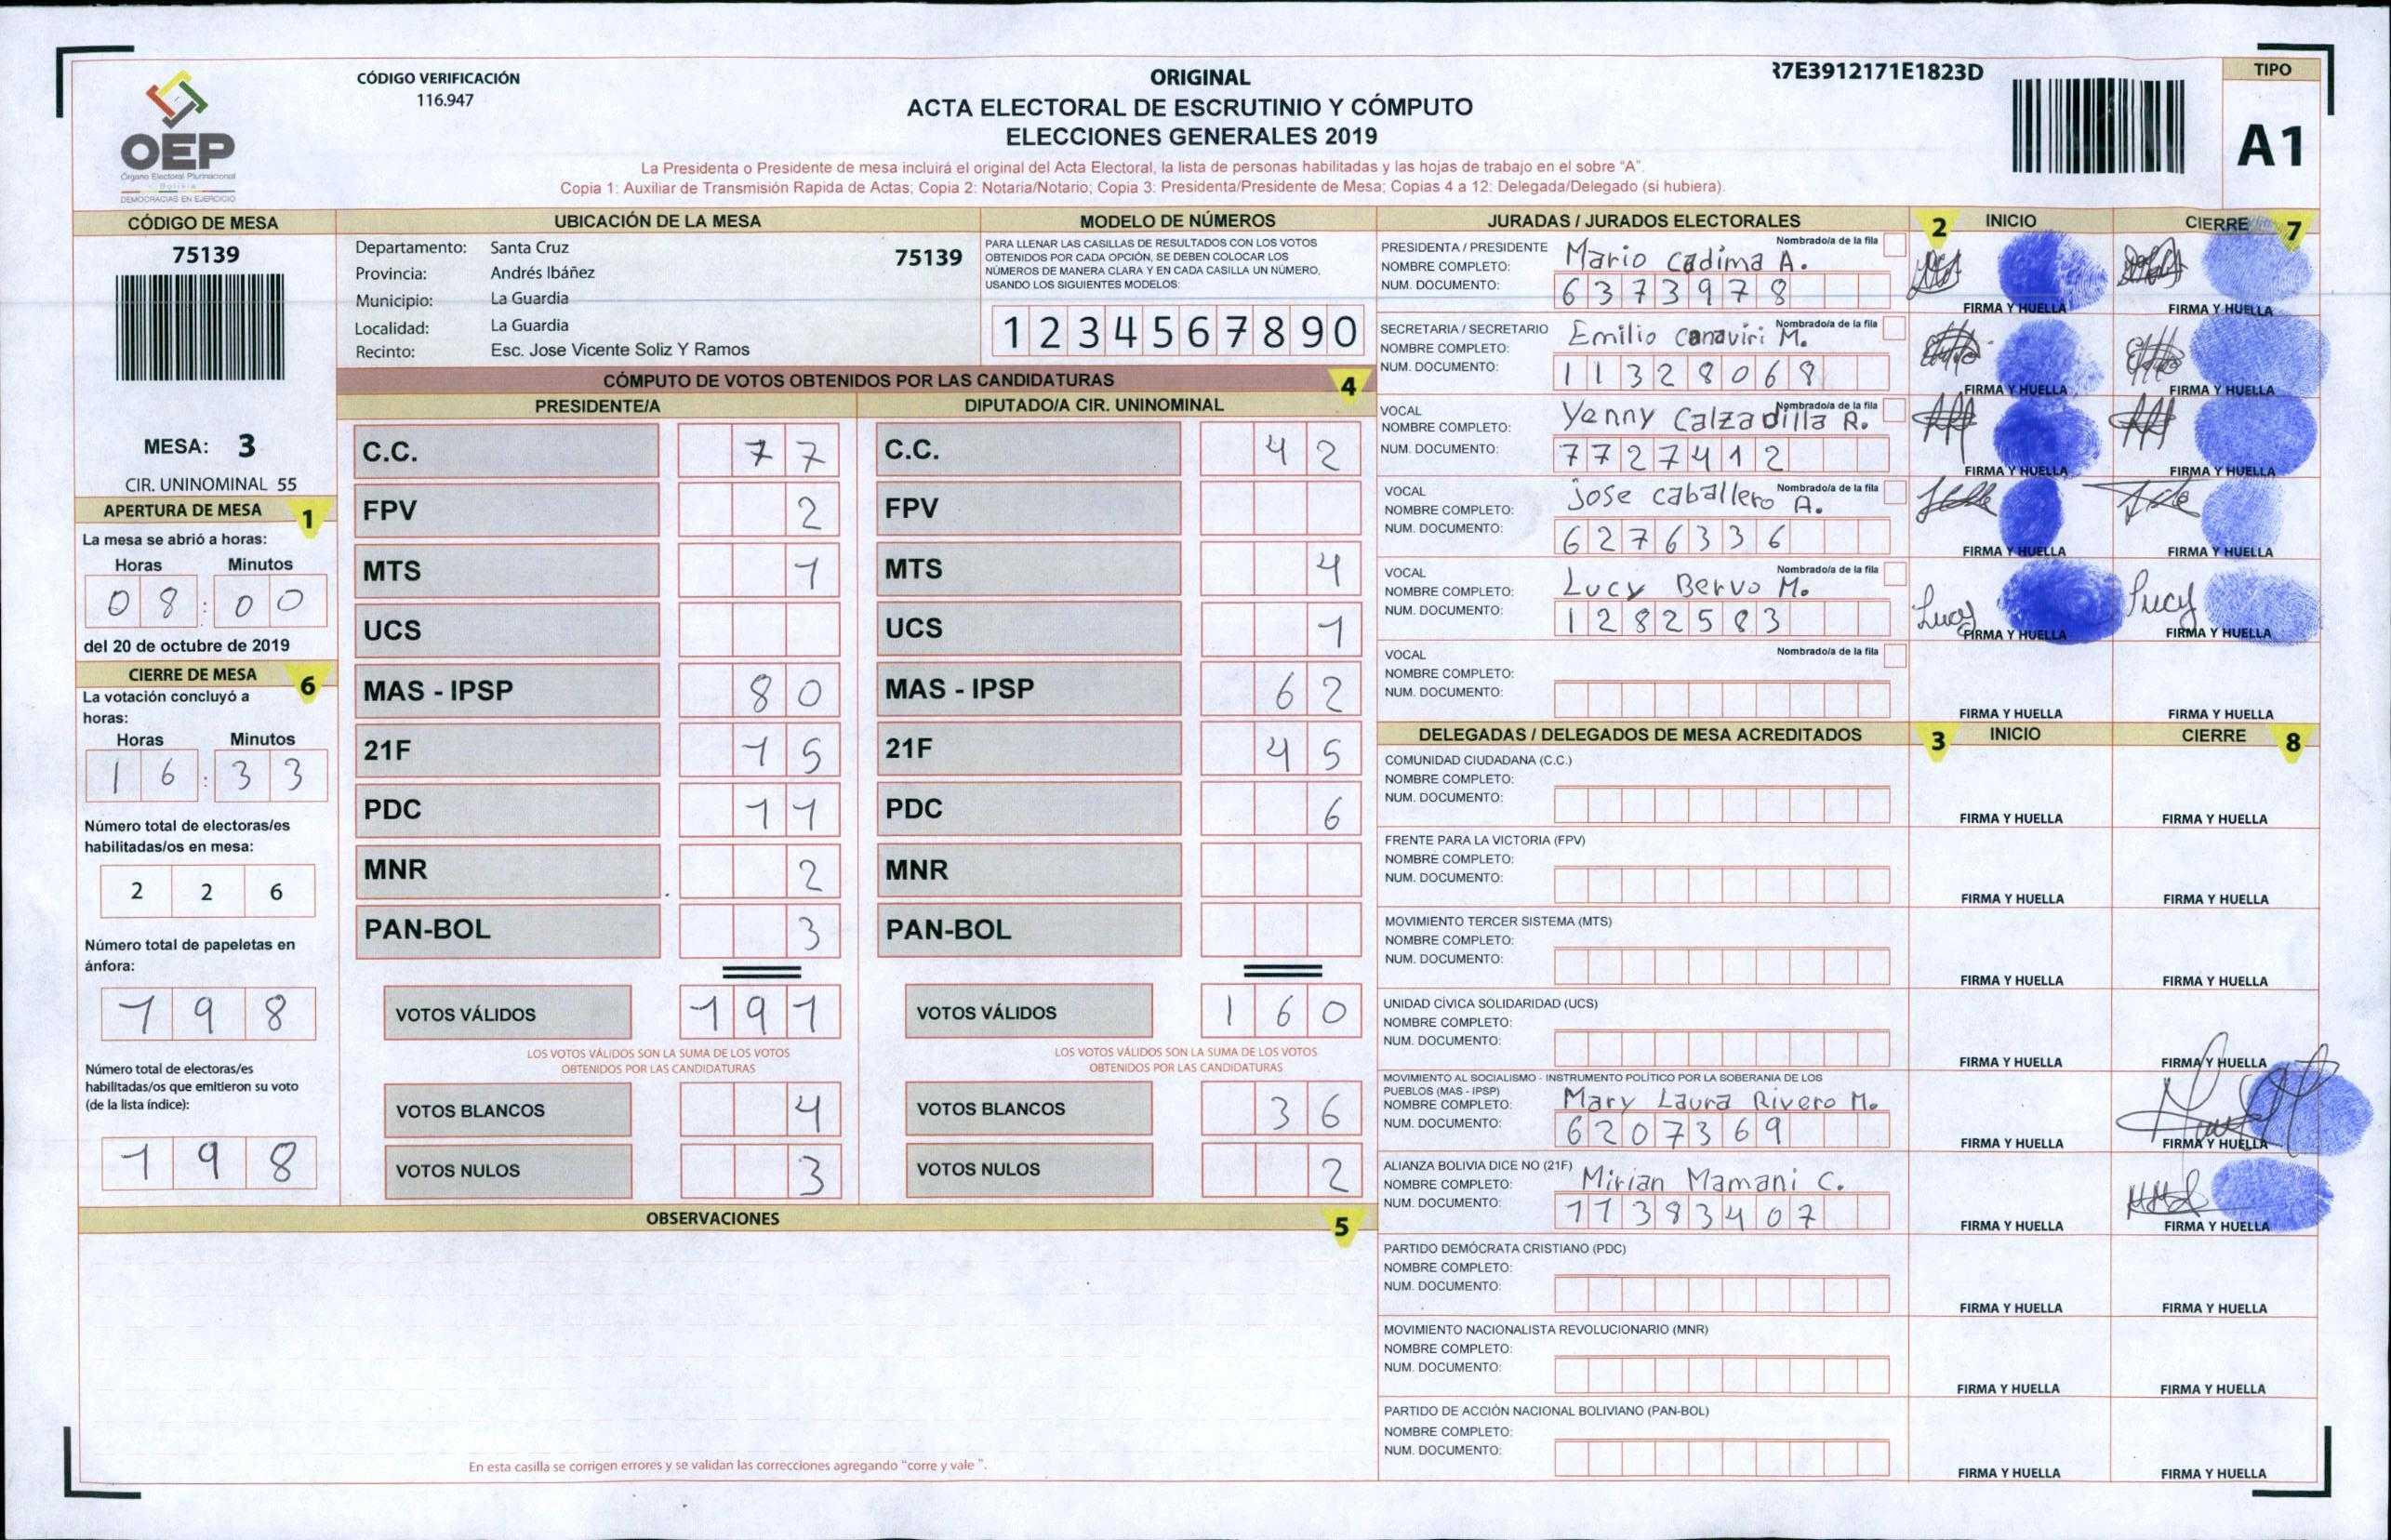 CÓDIGO VERIFICACIÓN
116.947
ORIGINAL
ACTA ELECTORAL DE ESCRUTINIO Y CÓMPUTO
ELECCIONES GENERALES 2019
La Presidenta o Presidente de mesa incluirá el original del Acta Electoral, la lista de personas habilitadas y las hojas de trabajo en el sobre “A”.
Copia 1: Auxiliar de Transmisión Rapida de Actas; Copia 2: Notaria/Notario; Copia 3: Presidenta/Presidente de Mesa; Copias 4 a 12: Delegada/Delegado (si hubiera).
R7E3912171E1823D
TIPO
A1
OEP
Órgano Electoral Plurinacional
Bolivia
DEMOCRACIAS EN EJERCICIO
CÓDIGO DE MESA
75139
MESA: 3
CIR. UNINOMINAL 55
APERTURA DE MESA 1
La mesa se abrió a horas:
Horas Minutos
08:00
del 20 de octubre de 2019
CIERRE DE MESA 6
La votación concluyó a
horas:
Horas Minutos
16:33
Número total de electoras/es
habilitadas/os en mesa:
226
Número total de papeletas en
ánfora:
198
Número total de electoras/es
habilitadas/os que emitieron su voto
(de la lista índice):
198
UBICACIÓN DE LA MESA
Departamento: Santa Cruz 75139
Provincia: Andrés Ibáñez
Municipio: La Guardia
Localidad: La Guardia
Recinto: Esc. Jose Vicente Soliz Y Ramos
MODELO DE NÚMEROS
PARA LLENAR LAS CASILLAS DE RESULTADOS CON LOS VOTOS
OBTENIDOS POR CADA OPCIÓN, SE DEBEN COLOCAR LOS
NÚMEROS DE MANERA CLARA Y EN CADA CASILLA UN NÚMERO,
USANDO LOS SIGUIENTES MODELOS:
1234567890
CÓMPUTO DE VOTOS OBTENIDOS POR LAS CANDIDATURAS 4
PRESIDENTE/A
C.C. 77
FPV 2
MTS 1
UCS
MAS - IPSP 80
21F 15
PDC 11
MNR 2
PAN-BOL 3
VOTOS VÁLIDOS 191
LOS VOTOS VÁLIDOS SON LA SUMA DE LOS VOTOS
OBTENIDOS POR LAS CANDIDATURAS
VOTOS BLANCOS 4
VOTOS NULOS 3
DIPUTADO/A CIR. UNINOMINAL
C.C. 42
FPV
MTS 4
UCS 1
MAS - IPSP 62
21F 45
PDC 6
MNR
PAN-BOL
VOTOS VÁLIDOS 160
LOS VOTOS VÁLIDOS SON LA SUMA DE LOS VOTOS
OBTENIDOS POR LAS CANDIDATURAS
VOTOS BLANCOS 36
VOTOS NULOS 2
OBSERVACIONES 5
En esta casilla se corrigen errores y se validan las correcciones agregando “corre y vale ”.
JURADAS / JURADOS ELECTORALES 2 INICIO CIERRE 7
PRESIDENTA / PRESIDENTE Nombrado/a de la fila
NOMBRE COMPLETO: Mario Cadima A.
NUM. DOCUMENTO: 6373978
FIRMA Y HUELLA FIRMA Y HUELLA
SECRETARIA / SECRETARIO Nombrado/a de la fila
NOMBRE COMPLETO: Emilio Canaviri M.
NUM. DOCUMENTO: 11328068
FIRMA Y HUELLA FIRMA Y HUELLA
VOCAL Nombrado/a de la fila
NOMBRE COMPLETO: Yenny Calzadilla R.
NUM. DOCUMENTO: 7727412
FIRMA Y HUELLA FIRMA Y HUELLA
VOCAL Nombrado/a de la fila
NOMBRE COMPLETO: jose caballero A.
NUM. DOCUMENTO: 6276336
FIRMA Y HUELLA FIRMA Y HUELLA
VOCAL Nombrado/a de la fila
NOMBRE COMPLETO: Lucy Bervo M.
NUM. DOCUMENTO: 1282583
Lucy Lucy
FIRMA Y HUELLA FIRMA Y HUELLA
VOCAL Nombrado/a de la fila
NOMBRE COMPLETO:
NUM. DOCUMENTO:
FIRMA Y HUELLA FIRMA Y HUELLA
DELEGADAS / DELEGADOS DE MESA ACREDITADOS 3 INICIO CIERRE 8
COMUNIDAD CIUDADANA (C.C.)
NOMBRE COMPLETO:
NUM. DOCUMENTO:
FIRMA Y HUELLA FIRMA Y HUELLA
FRENTE PARA LA VICTORIA (FPV)
NOMBRE COMPLETO:
NUM. DOCUMENTO:
FIRMA Y HUELLA FIRMA Y HUELLA
MOVIMIENTO TERCER SISTEMA (MTS)
NOMBRE COMPLETO:
NUM. DOCUMENTO:
FIRMA Y HUELLA FIRMA Y HUELLA
UNIDAD CÍVICA SOLIDARIDAD (UCS)
NOMBRE COMPLETO:
NUM. DOCUMENTO:
FIRMA Y HUELLA FIRMA Y HUELLA
MOVIMIENTO AL SOCIALISMO - INSTRUMENTO POLÍTICO POR LA SOBERANIA DE LOS
PUEBLOS (MAS - IPSP)
NOMBRE COMPLETO: Mary Laura Rivero M.
NUM. DOCUMENTO: 6207369
FIRMA Y HUELLA FIRMA Y HUELLA
ALIANZA BOLIVIA DICE NO (21F)
NOMBRE COMPLETO: Mirian Mamani C.
NUM. DOCUMENTO: 11383407
FIRMA Y HUELLA FIRMA Y HUELLA
PARTIDO DEMÓCRATA CRISTIANO (PDC)
NOMBRE COMPLETO:
NUM. DOCUMENTO:
FIRMA Y HUELLA FIRMA Y HUELLA
MOVIMIENTO NACIONALISTA REVOLUCIONARIO (MNR)
NOMBRE COMPLETO:
NUM. DOCUMENTO:
FIRMA Y HUELLA FIRMA Y HUELLA
PARTIDO DE ACCIÓN NACIONAL BOLIVIANO (PAN-BOL)
NOMBRE COMPLETO:
NUM. DOCUMENTO:
FIRMA Y HUELLA FIRMA Y HUELLA